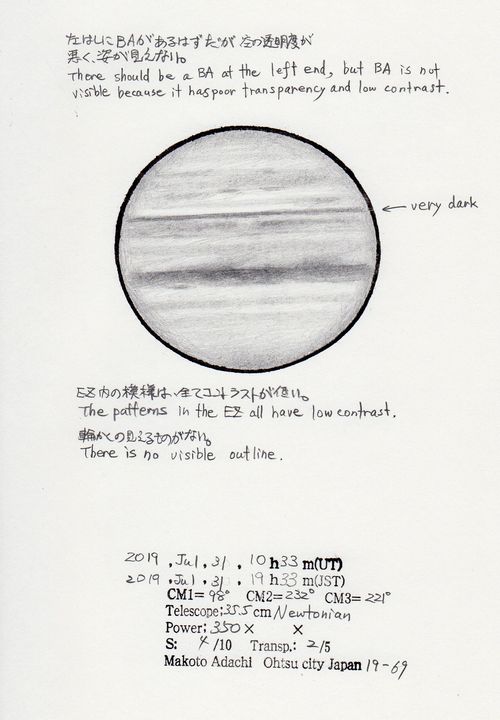 左はしにBAがあるはずだが 空の透明度が
悪く、姿が見えない。
There should be a BA at the left end, but BA is not
visible because it has poor transparency and low contrast.
← very dark
EZ内の模様は、全てコントラストが低い。
The patterns in the EZ all have low contrast.
輪かくの見えるものがない。
There is no visible outline.
2019 , Jul , 31 , 10 h 33 m(UT)
2019 , Jul , 31 , 19 h 33 m(JST)
CM1= 98° CM2= 232° CM3= 221°
Telescope; 35.5 cm Newtonian
Power; 350 × ×
S: 4 /10 Transp.: 2 /5
Makoto Adachi Ohtsu city Japan 19-69